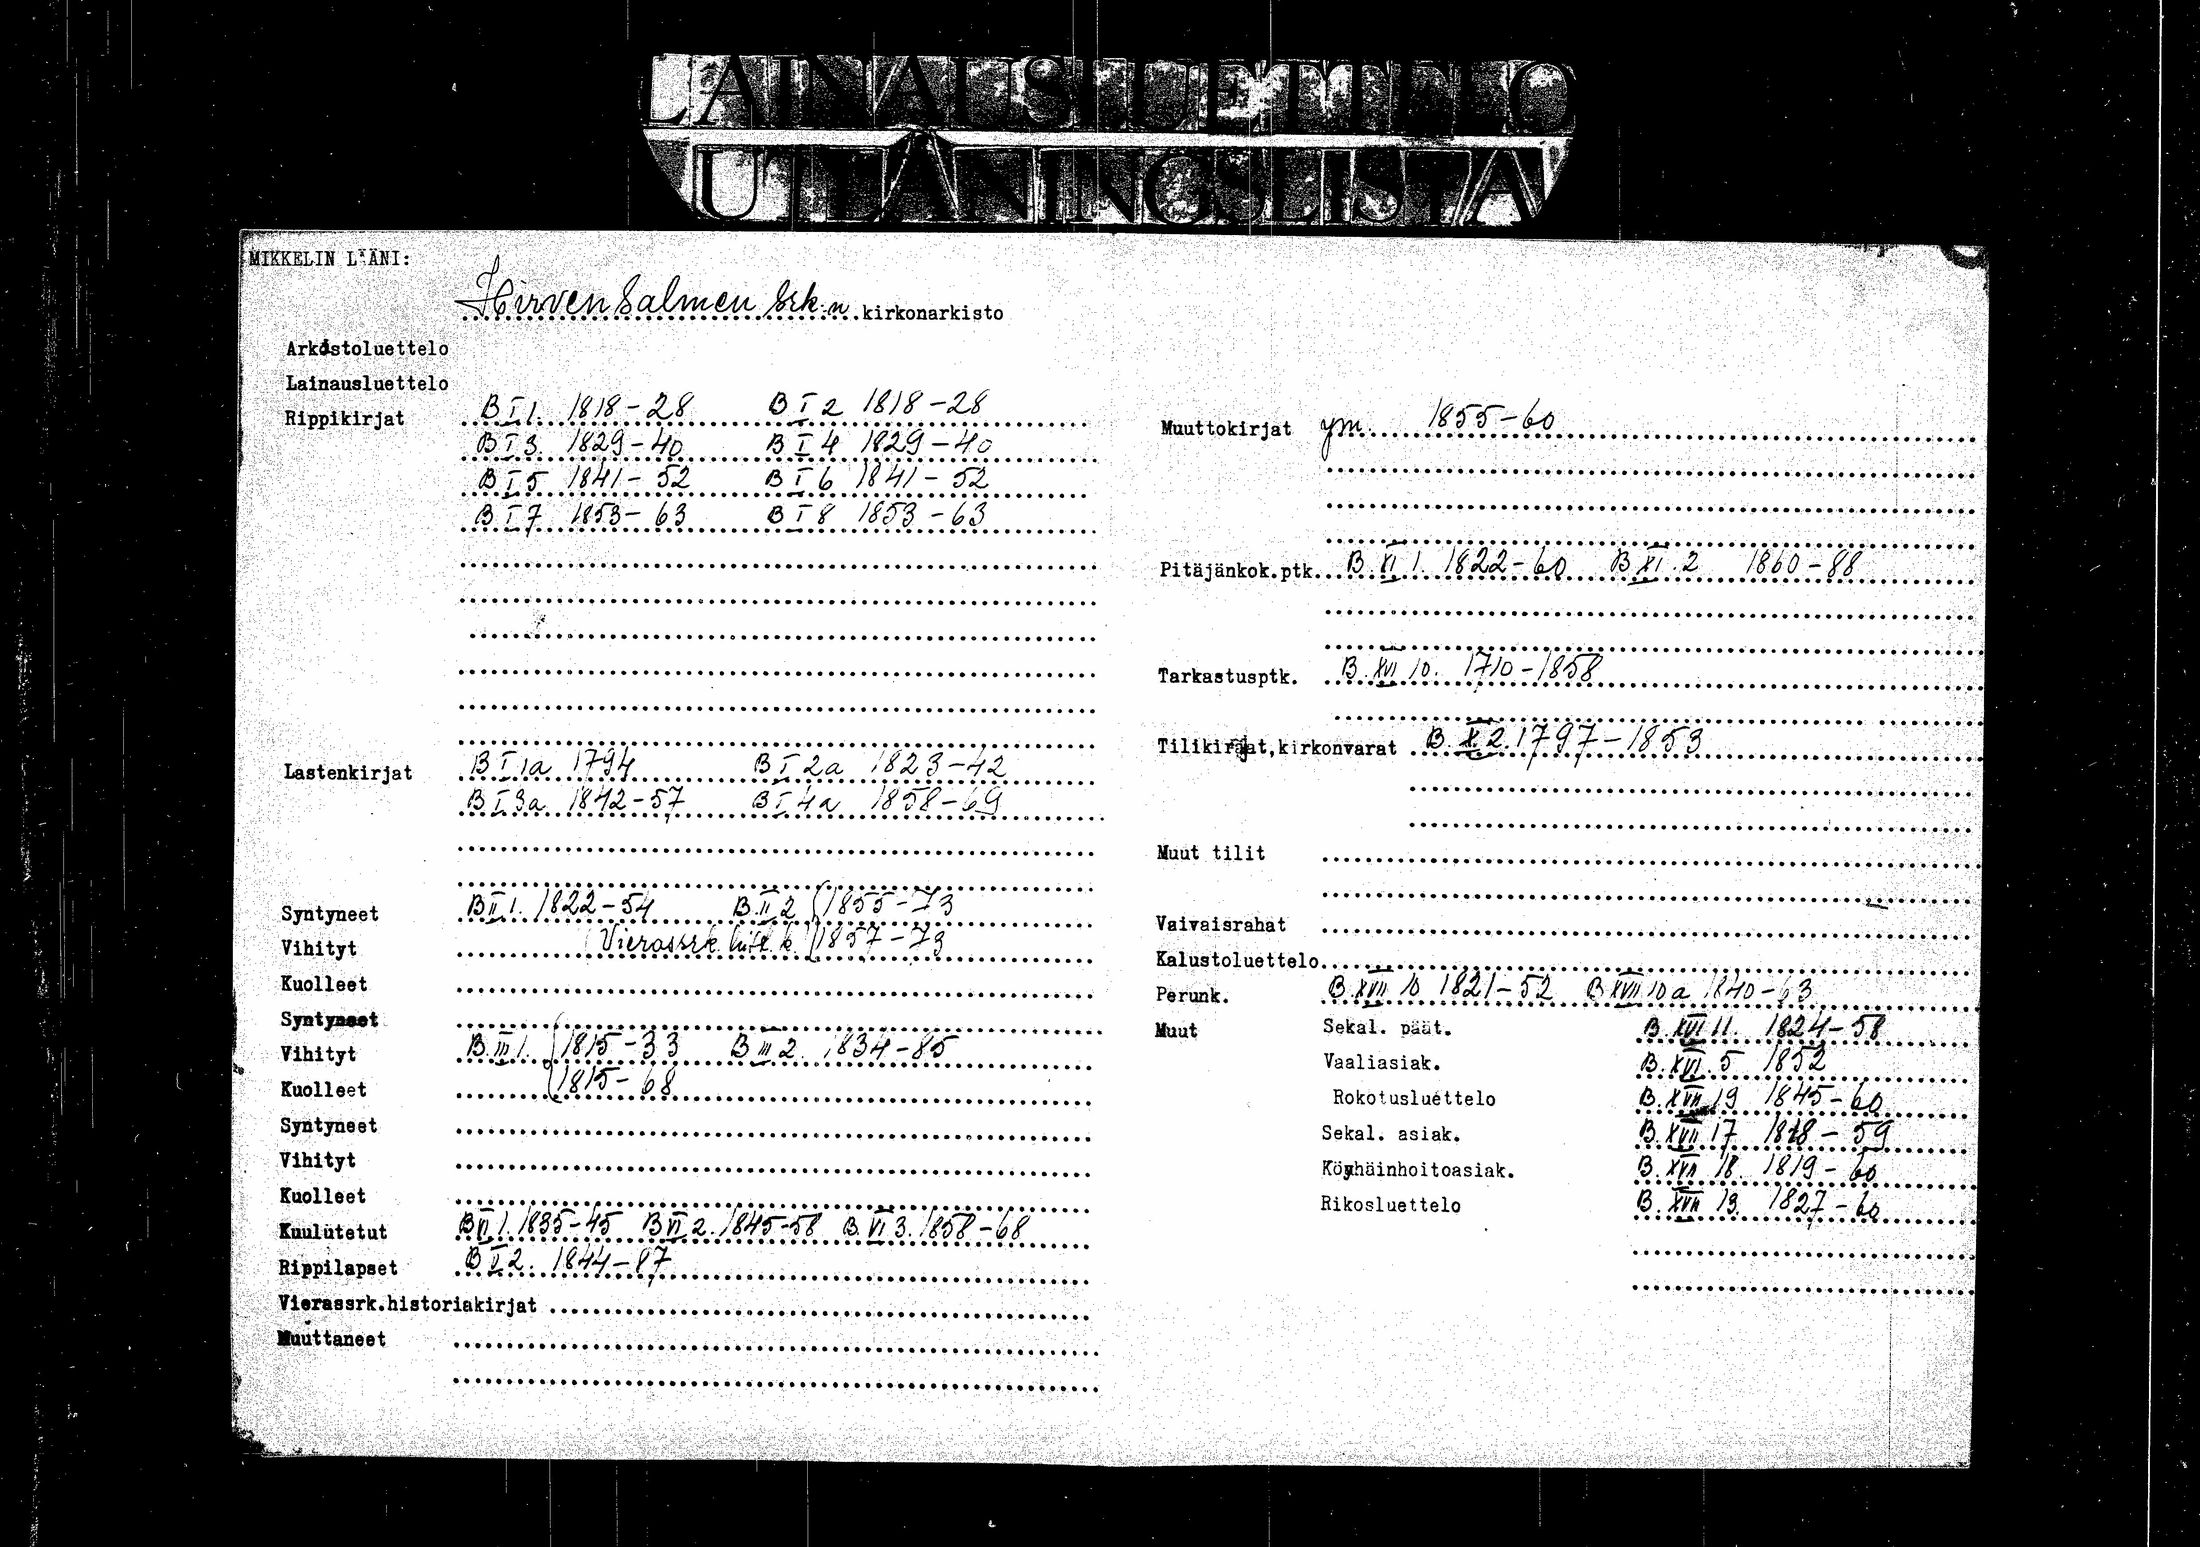 LAINAUSLUETTELO
UTLÅNINGSLISTA
MIKKELIN LÄÄNI:
Hirvensalmen srk:n kirkonarkisto
Arkistoluettelo
Lainausluettelo
Rippikirjat B I 1. 1818-28 B I 2 1818-28
B I 3. 1829-40 B I 4 1829-40
B I 5 1841-52 B I 6 1841-52
B I 7 1853-63 B I 8 1853-63
Lastenkirjat B I 1a 1794 B I 2a 1823-42
B I 3a 1842-57 B I 4a 1858-69
Syntyneet B II 1. 1822-54 B II 2 (1855-73
Vihityt (Vierassrk. hist. k. (1857-73
Kuolleet
Syntyneet
Vihityt B III 1. (1815-33 B III 2. 1834-85
Kuolleet (1815-68
Syntyneet
Vihityt
Kuolleet
Kuulutetut B VI 1. 1835-45 B VI 2. 1845-58 B. VI 3. 1858-68
Rippilapset B I 2. 1844-87
Vierassrk.historiakirjat
Muuttaneet
Muuttokirjat ym. 1855-60
Pitäjänkok.ptk. B. XI 1. 1822-60 B XI. 2 1860-88
Tarkastusptk. B. XVI 10. 1710-1858
Tilikirjat,kirkonvarat B. X. 2. 1797-1853
Muut tilit
Vaivaisrahat
Kalustoluettelo
Perunk. B. XVII 10 1821-52 B XVII 10 a 1840-63
Muut Sekal. päät. B. XVI 11. 1824-58
Vaaliasiak. B. XVI. 5 1852
Rokotusluettelo B. XVII 19 1845-60
Sekal. asiak. B. XVII 17 1818-59
Köyhäinhoitoasiak. B. XVII 18. 1819-60
Rikosluettelo B. XVII 13. 1827-60